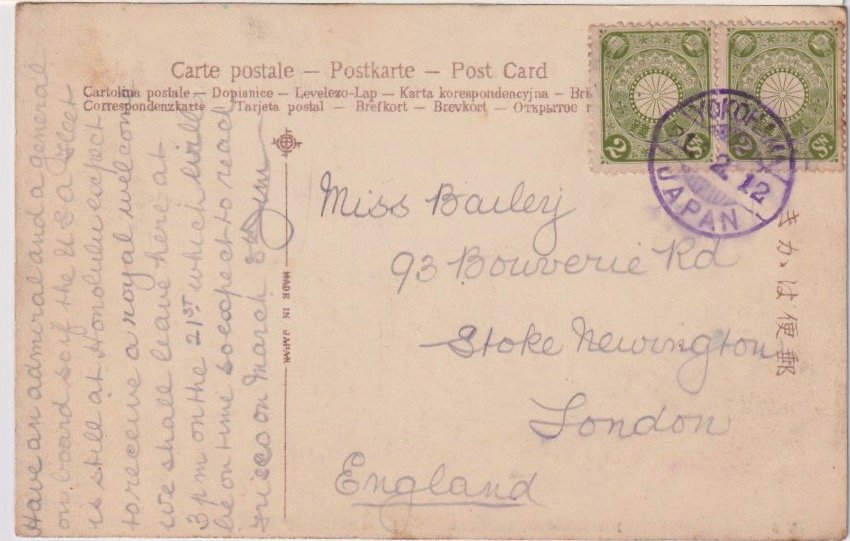 Carte postale – Postkarte – Post Card
Cartolina postale – Dopisnice – Levelezo-Lap – Karta korespondencyjna – Br
Correspondenzkarte – Tarjeta postal – Brefkort – Brevkort – Открытое
2 2
YOKOHAMA
21. 2. 12
JAPAN
Miss Bailey
93 Bouverie Rd
Stoke Newington
London
England
きかは便郵
MADE IN JAPAN
Have an admiral and a general
on board so if the USA fleet
is still at Honolulu expect
to receive a royal welcome
we shall leave here at
3 pm on the 21ST which will
be on time so expect to reach
Frisco on March 8th Jim